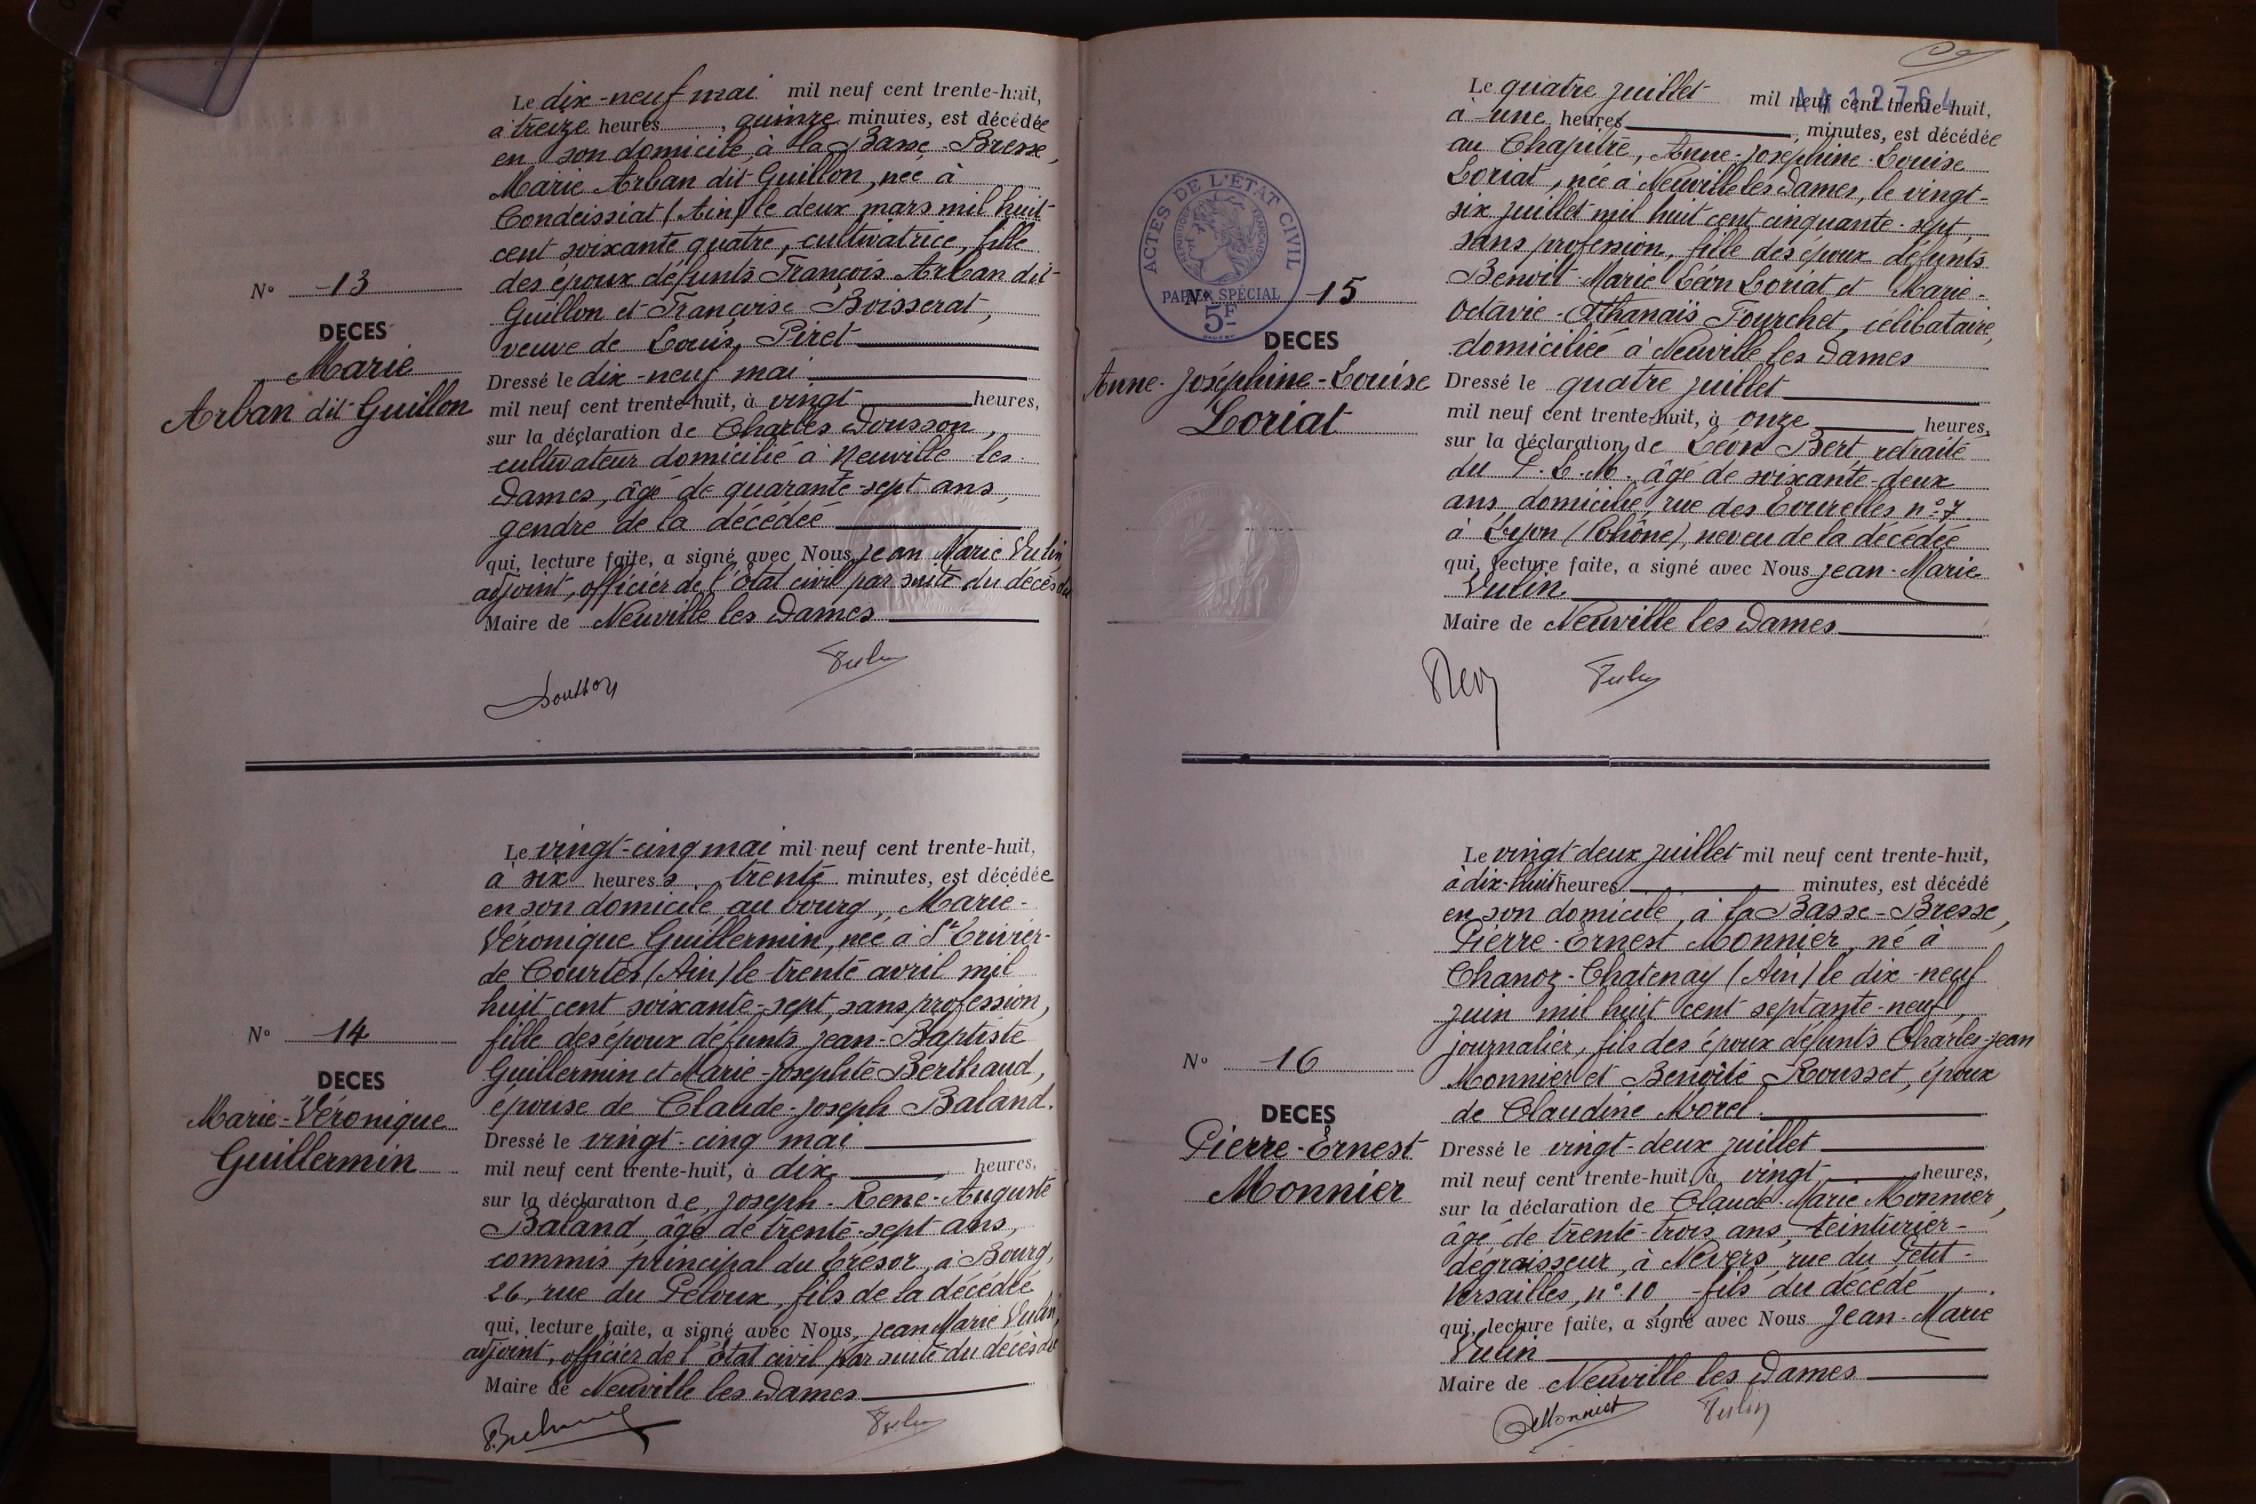 Le dix-neuf mai mil neuf cent trente-huit,
à treize heures, quinze minutes, est décédée
en son domicile, à la Basse-Bresse,
Marie Arban dit Guillon, née à
Condeissiat (Ain) le deux mars mil huit
cent soixante quatre, cultivatrice, fille
des époux défunts François Arban dit
Guillon et Françoise Boisserat,
veuve de Louis Piret
N° 13
DECES
Marie
Arban dit Guillon
Dressé le dix-neuf mai
mil neuf cent trente-huit, à vingt heures,
sur la déclaration de Charles Dousson,
cultivateur domicilié à Neuville les
Dames, âgé de quarante-sept ans,
gendre de la décédée
qui, lecture faite, a signé avec Nous, Jean Marie Vulin,
adjoint, officier de l'Etat civil par suite du décès du
Maire de Neuville les Dames
Dousson Vulin
Le vingt-cinq mai mil neuf cent trente-huit,
à six heures, trente minutes, est décédée
en son domicile au bourg, Marie-
Véronique Guillermin, née à St Trivier-
de Courtes (Ain) le trente avril mil
huit cent soixante-sept, sans profession,
fille des époux défunts Jean-Baptiste
Guillermin et Marie-Josephte Berthaud,
épouse de Claude-Joseph Baland.
N° 14
DECES
Marie-Véronique
Guillermin
Dressé le vingt-cinq mai
mil neuf cent trente-huit, à dix heures,
sur la déclaration de Joseph-René-Auguste
Baland, âgé de trente-sept ans,
commis principal du Trésor, à Bourg,
26, rue du Peloux, fils de la décédée
qui, lecture faite, a signé avec Nous, Jean Marie Vulin,
adjoint, officier de l'Etat civil par suite du décès du
Maire de Neuville les Dames
Vulin
AA 12764
Le quatre juillet mil neuf cent trente-huit,
à une heures minutes, est décédée
au Chapitre, Anne-Joséphine-Louise
Loriat, née à Neuville les Dames, le vingt-
six juillet mil huit cent cinquante-sept,
sans profession, fille des époux défunts
Benoit-Marie Léon Loriat et Marie-
Octavie-Athanaïs Fourchet, célibataire,
domiciliée à Neuville les Dames
ACTES DE L'ÉTAT CIVIL
PAPIER SPÉCIAL
5F
N° 15
DECES
Anne-Joséphine-Louise
Loriat
Dressé le quatre juillet
mil neuf cent trente-huit, à onze heures,
sur la déclaration de Léon Bert retraité
du P.L.M. âgé de soixante-deux
ans, domicilié, rue des Tourelles n° 7
à Lyon (Rhône), neveu de la décédée
qui, lecture faite, a signé avec Nous Jean-Marie
Vulin
Maire de Neuville les Dames
Vulin
Le vingt-deux juillet mil neuf cent trente-huit,
à dix-huit heures minutes, est décédé
en son domicile, à la Basse-Bresse,
Pierre-Ernest Monnier, né à
Chanoz-Chatenay (Ain) le dix-neuf
juin mil huit cent septante-neuf,
journalier, fils des époux défunts Charles-Jean
Monnier et Benoîte Rousset, époux
de Claudine Morel.
N° 16
DECES
Pierre-Ernest
Monnier
Dressé le vingt-deux juillet
mil neuf cent trente-huit, à vingt heures,
sur la déclaration de Claude-Marie Monnier,
âgé de trente-trois ans, teinturier-
dégraisseur, à Nevers, rue du Petit-
Versailles, n° 10, fils du décédé
qui, lecture faite, a signé avec Nous Jean-Marie
Vulin
Maire de Neuville les Dames
Monnier Vulin